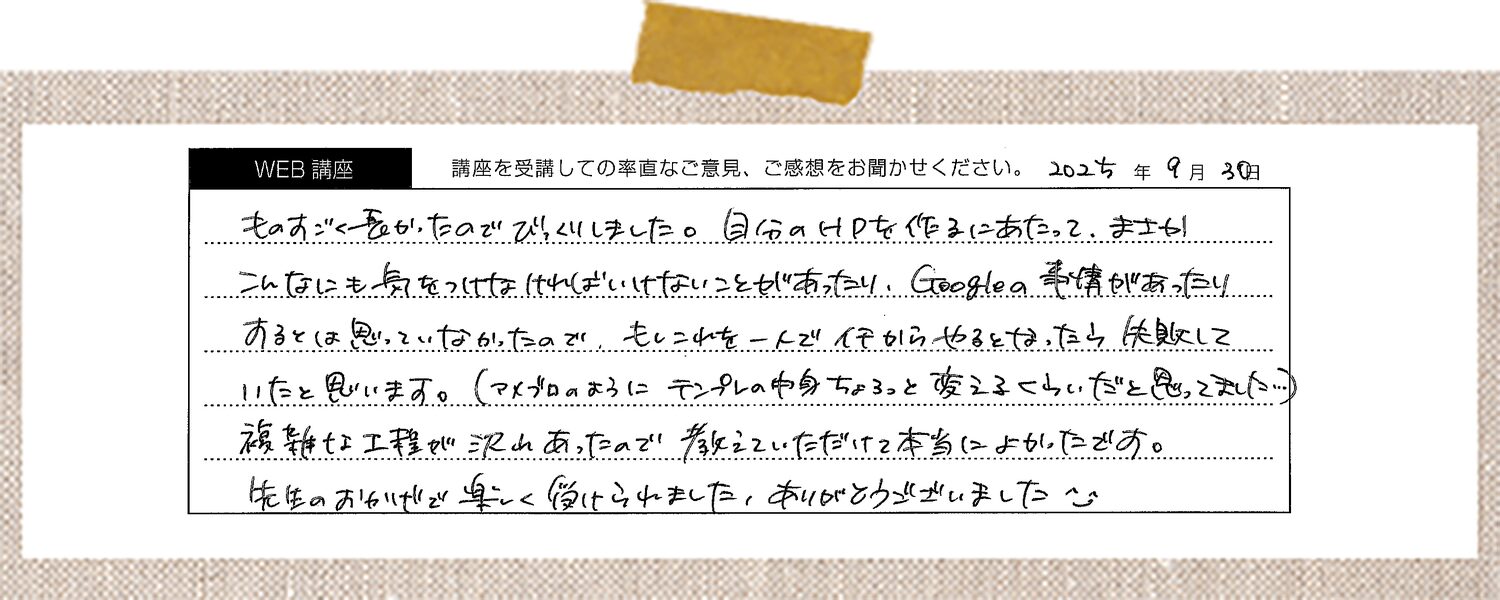 WEB 講座
講座を受講しての率直なご意見、ご感想をお聞かせください。 2025 年 9 月 30日
ものすごく長かったのでびっくりしました。自分のHPを作るにあたって、まさか
こんなにも気をつけなければいけないことがあったり、Googleの事情があったり
するとは思っていなかったので、もしこれを一人でイチからやるとなったら失敗して
いたと思います。(アメブロのように テンプレの中身ちょろっと変えるくらいだと思ってました…)
複雑な工程が沢山あったので教えていただけて本当によかったです。
先生のおかげで楽しく受けられました、ありがとうございました